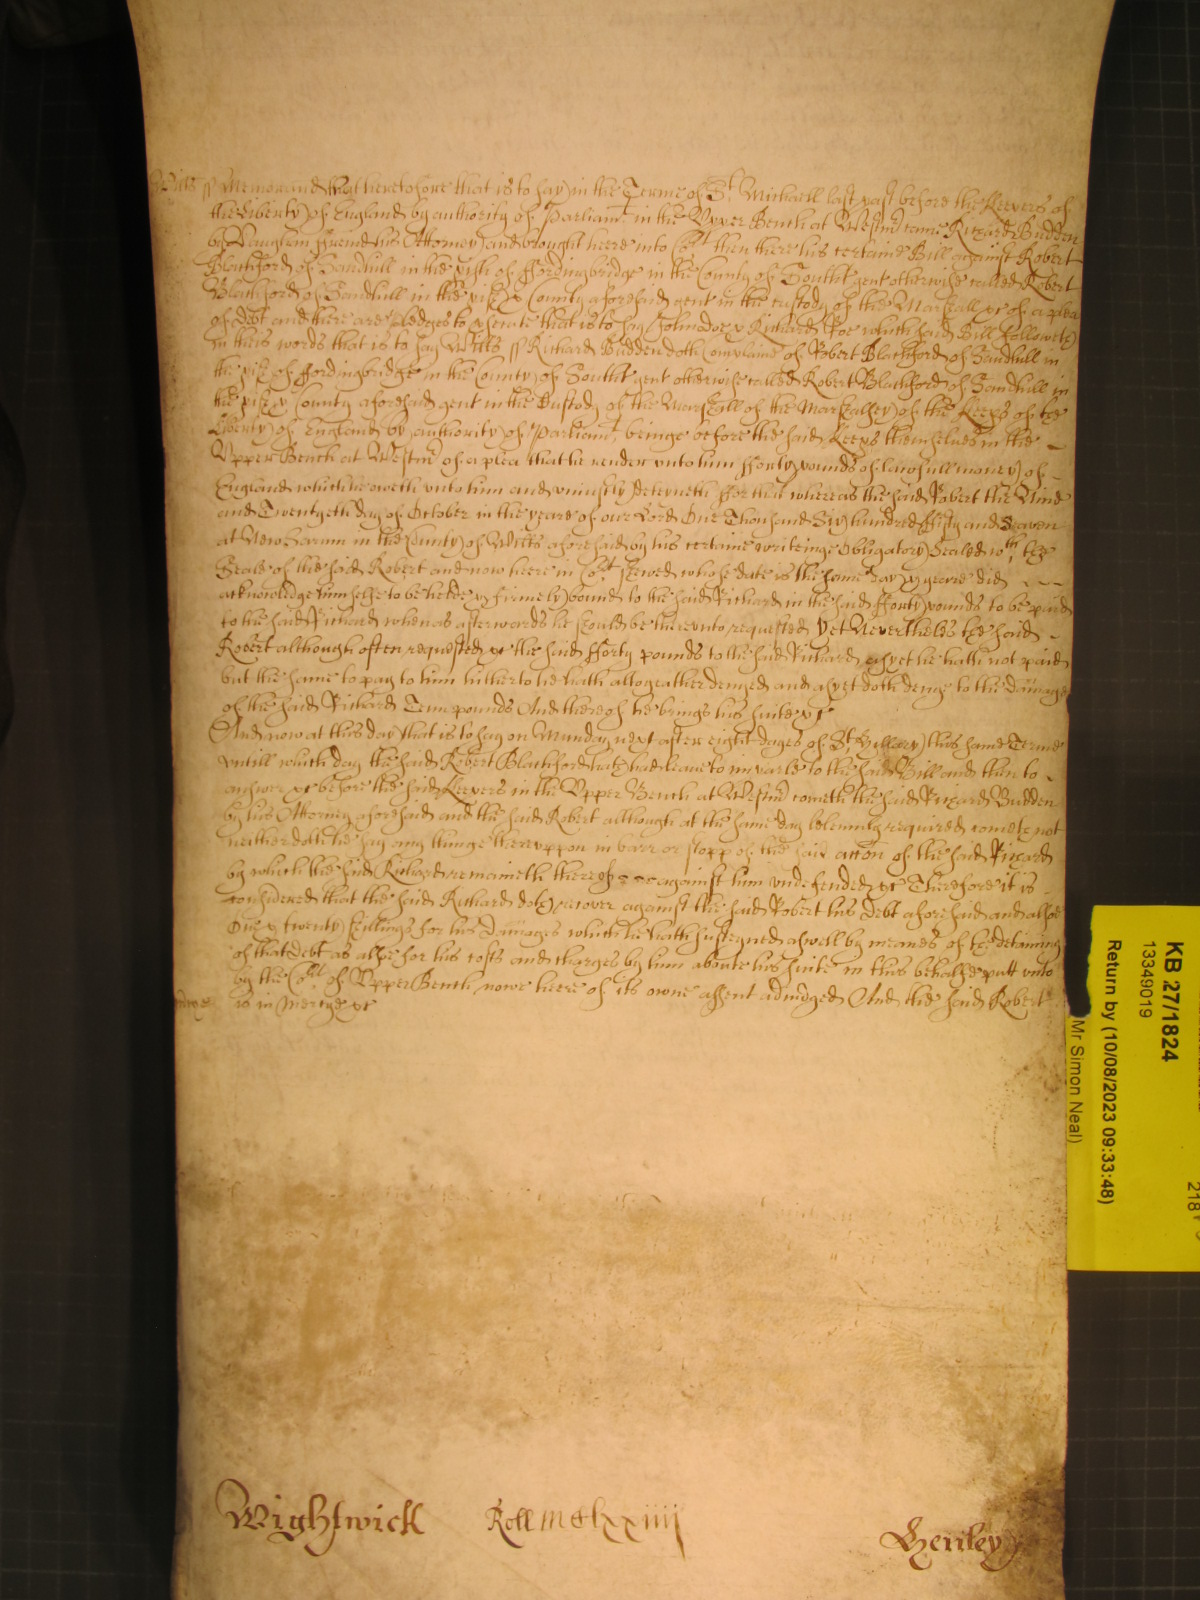 Wilts ss Memorand that heretofore that is to say in the Terme of St. Michaell last past before the Keepers of
the Liberty of England by authority of Parliamt. in the Upper Bench at Westmr came Richard Budden
by Vaughan ffreind his Attorney and brought heere into Cort then there his certaine Bill against Robert
Blachford of Sandhull in the pish of ffordingbridge in the County of Southt gent otherwise called Robert
Blachford of Sandhull in the pish & County aforesaid gent in the custody of the Marshall &c of a plea
of debt and there are pledges to psecute that is to say John Doe & Richard Roe which said Bill followeth
in theis words that is to say Wilts ss Richard Budden doth Complaine of Robert Blachford of Sandhull in
the pish of ffordingbridge in the County of Southt gent otherwise called Robert Blachford of Sandhull in
the pish & County aforesaid gent in the Custody of the Marshall of the Marshalsey of the Keeps of the
Liberty of England by authority of Parliamt. beinge before the said Keeps themselues in the
Upper Bench at Westmr of a plea that he render unto him fforty pounds of lawfull money of
England which he oweth unto him and uniustly deteyneth ffor that whereas the said Robert the Nine
and Twentyeth day of October in the yeare of our Lord One Thousand Six hundred ffifty and Seaven
at New Sarum in the County of Wilts aforesaid by his certaine writeinge Obligatory Sealed wth. the
Seale of the said Robert and now heere in Cort shewed whose date is the same day & yeare did
acknowledge himselfe to be held & firmely bound to the said Richard in the said fforty pounds to be paid
to the said Richard whenas afterwards he should be thereunto requested Yet Neverthelesse the said
Robert although often requested &c the said fforty pounds to the said Richard as yet he hath not paid
but the same to pay to him hitherto he hath altogeather denyed and as yet doth denye to the damage
of the said Richard Tenn pounds And thereof he brings his suite &c
And now at this day that is to say on Munday next after eight dayes of St. Hillary this same Terme
untill which day the said Robert Blachford hath had leave to imparle to the said Bill and then to
answer &c before the said Keepers in the Upper Bench at Westmr cometh the said Richard Budden
by his Attorney aforesaid and the said Robert although at the same day solemnly required cometh not
neither doth he say any thinge thereuppon in barr or stopp of the said accon of the said Richard
by which the said Richard remaineth thereof against him undefended &c Therefore it is
considered that the said Richard doth recover against the said Robert his Debt aforesaid and alsoe
One & twenty shillings for his Damages which he hath susteyned aswell by meanes of the detaining
of that Debt as alsoe for his costs and charges by him aboute his suite in this behalfe putt unto
by the Cort of Upper Bench nowe heere of its owne assent adiudged And the said Robert
is in Mercye &c
Wightwick
Roll MClxxiiii
Henley
KB 27/1824
13349019
Return by (10/08/2023 09:33:48)
Mr Simon Neal)